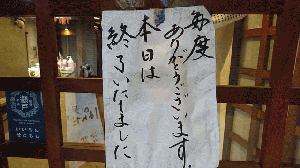 毎度
ありがとうございます。
本日は
終了いたしました
瀬戸